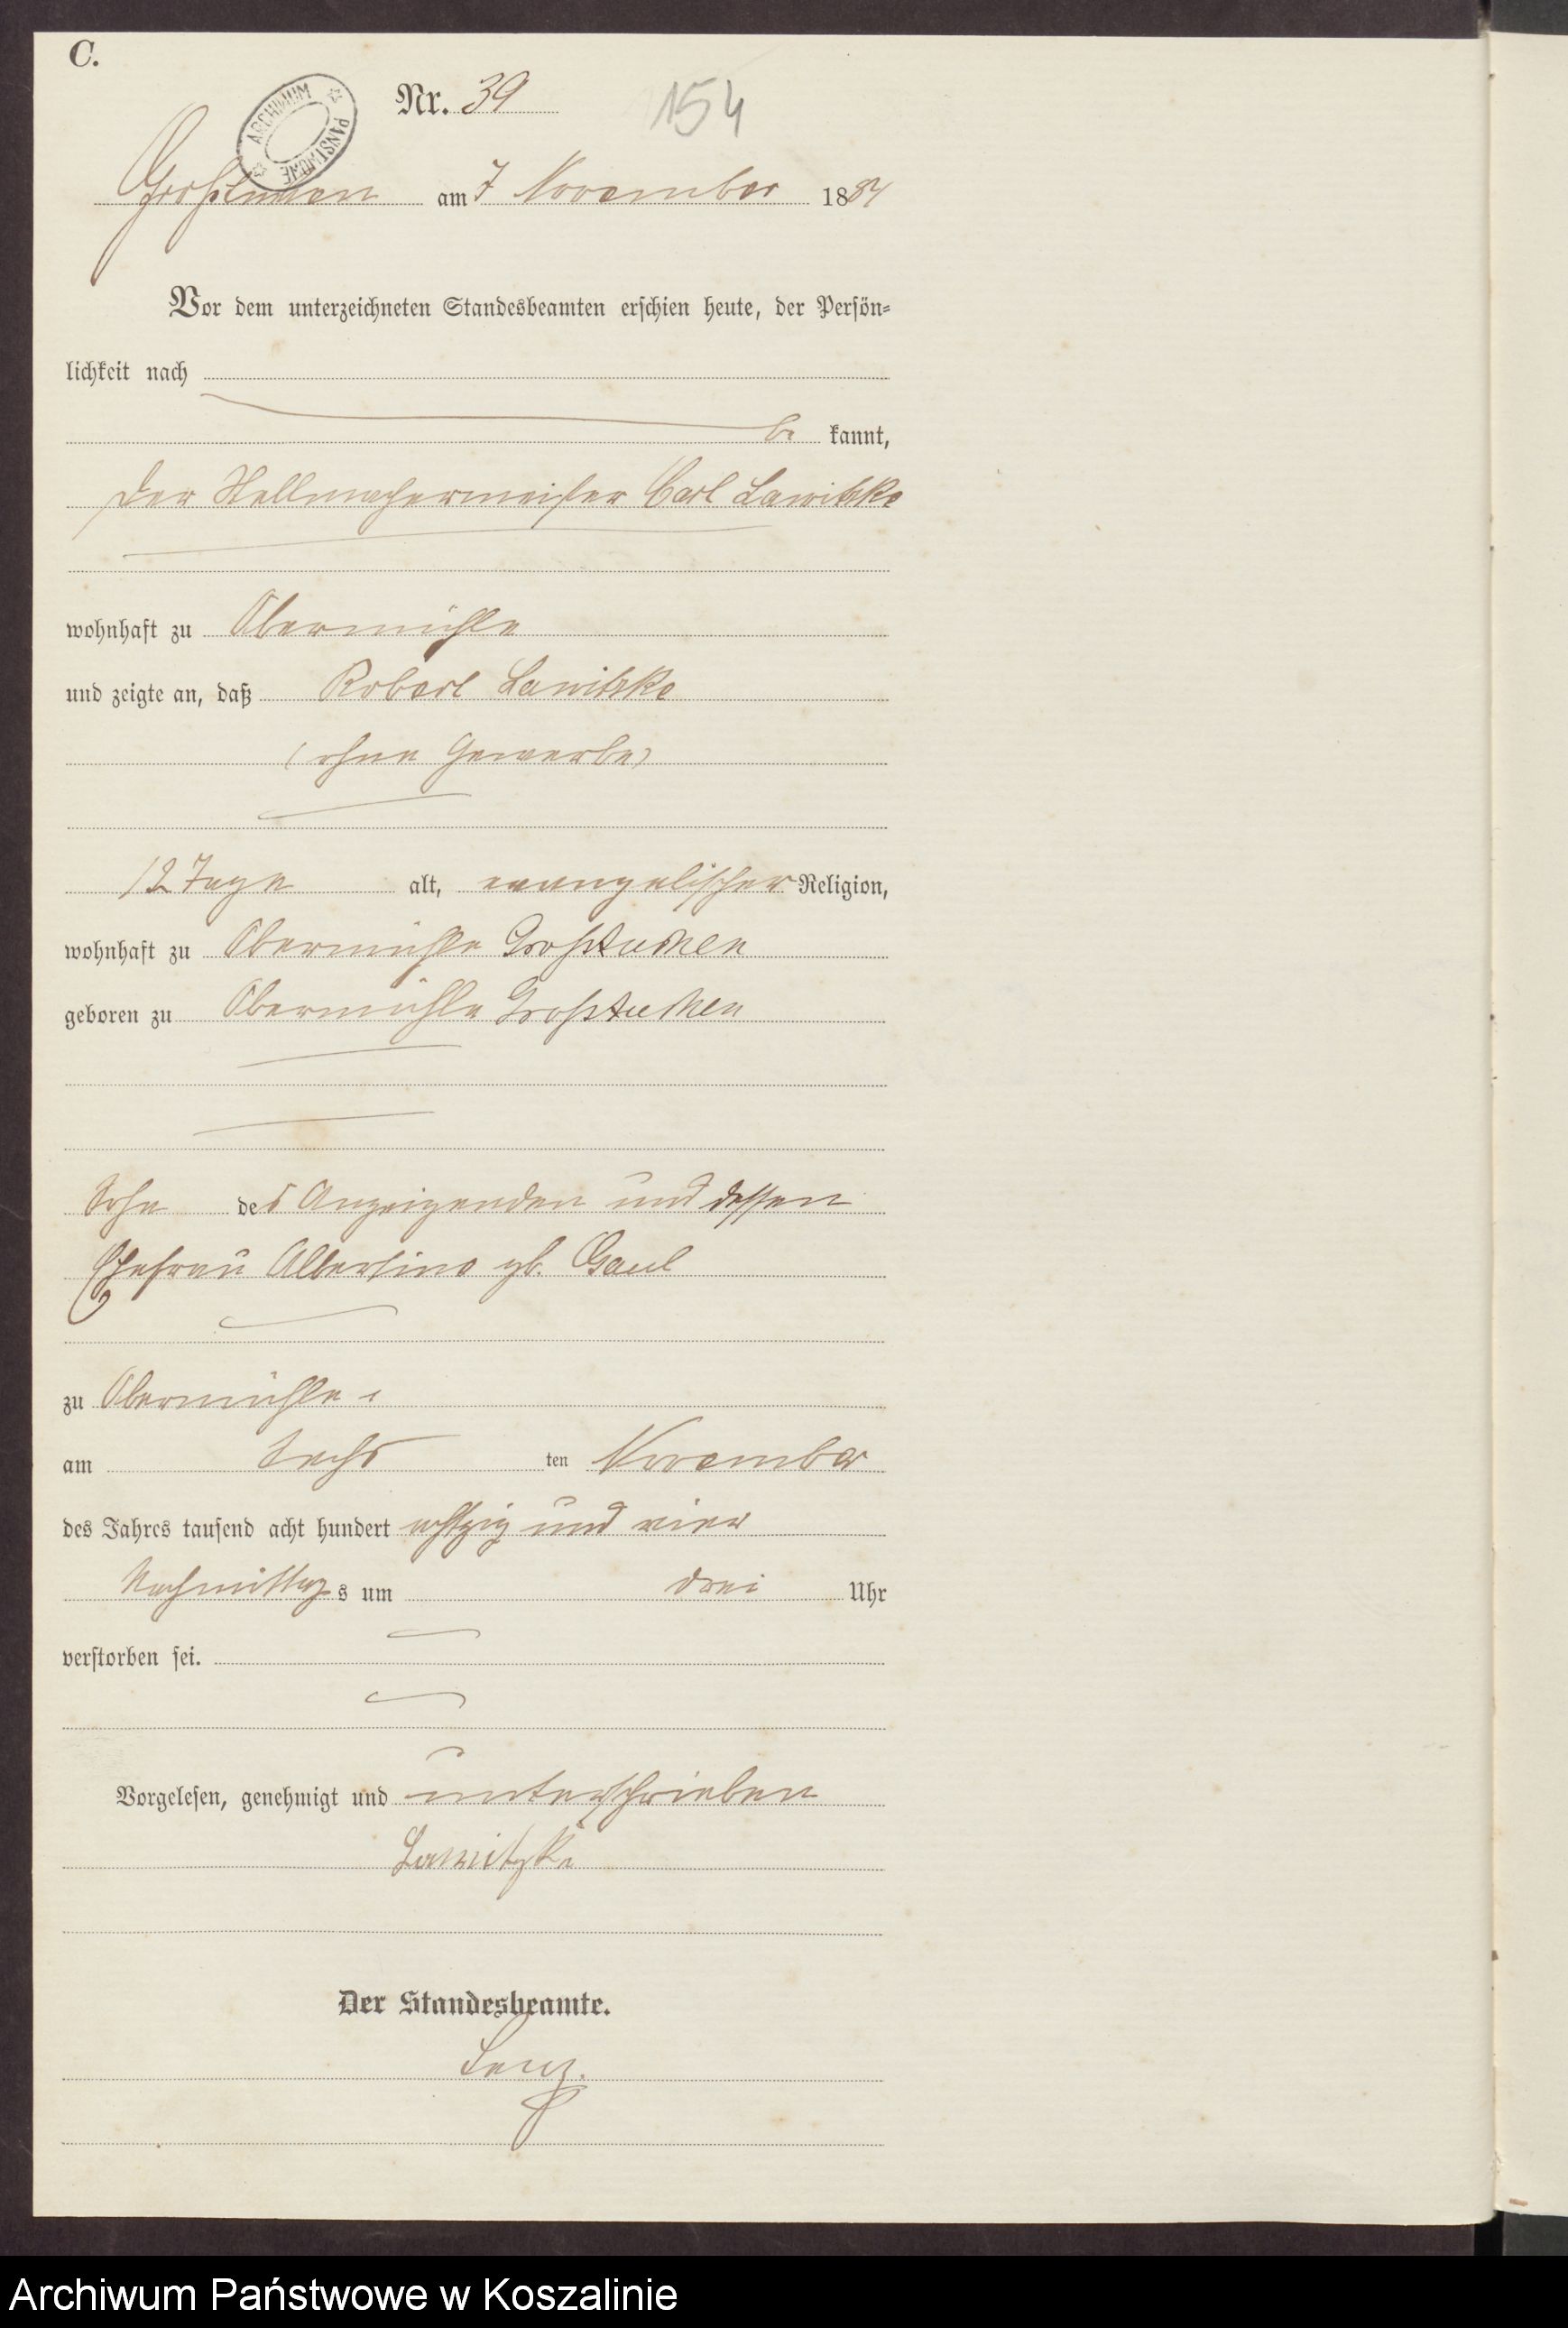 C.
ARCHIWUM PAŃSTWOWE
Nr. 39
154
Großtuchen am 7 November 1884
Vor dem unterzeichneten Standesbeamten erschien heute, der Persön-
lichkeit nach
be kannt,
der Stellmachermeister Carl Lawitzke
wohnhaft zu Obermühle
und zeigte an, daß Robert Lawitzke
(ohne Gewerbe)
12 Tage alt, evangelischer Religion,
wohnhaft zu Obermühle Großtuchen
geboren zu Obermühle Großtuchen
Sohn des Anzeigenden und dessen
Ehefrau Albertine gb. Gaul
zu Obermühle
am Sechs ten November
des Jahres tausend acht hundert achtzig und vier
Nachmittags um drei Uhr
verstorben sei.
Vorgelesen, genehmigt und unterschrieben
Lawitzke
Der Standesbeamte.
Lenz.
Archiwum Państwowe w Koszalinie